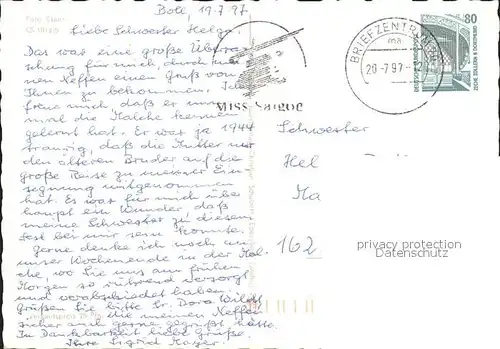 Boll, 19.7.97
Liebe Schwester Helga,
Das war eine große Überra-
schung für mich, durch meinen
Neffen einen Gruß von
Ihnen zu bekommen. Ich
freue mich, daß er ein-
mal die Malche kennen
gelernt hat. Er war ja 1944
traurig, daß die Mutter nur
den älteren Bruder auf die
große Reise zu meiner Ein-
segnung mitgenommen
hat. Es war für mich über-
haupt ein Wunder, daß
meine Schwester zu diesem
Fest bei mir sein konnte.
Gerne denke ich noch an
unser Wochenende in der Mal-
che, wo Sie uns am frühen
Morgen so rührend versorgt
und verabschiedet haben.
Grüßen Sie bitte Sr. Dora
die meinen Neffen
sicher auch gerne begrüßt hätte.
In Dankbarkeit liebe Grüße
Ihre Sigrid Mayer.
MISS SAIGON
BRIEFZENTRUM
ma
20-7.97
80
DEUTSCHE BUNDESPOST
Schwester
Hel
Ma
162
privacy protection
oldthing.de